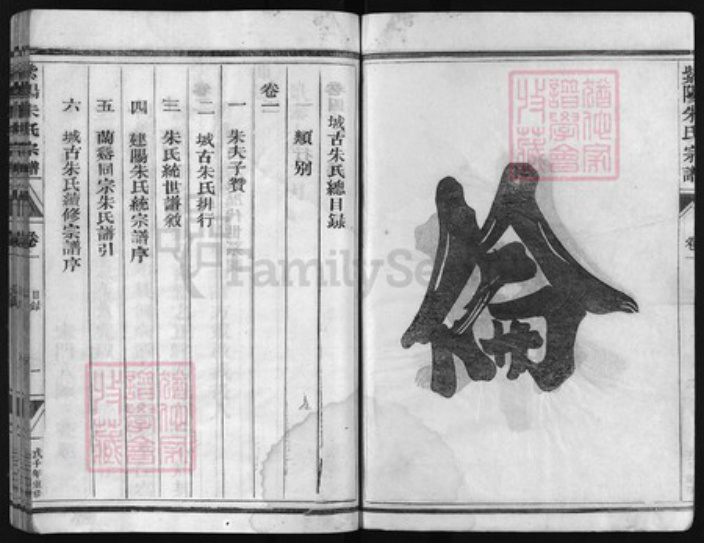 紫陽朱氏宗譜
卷一
倫
城古朱氏總目錄
類別
卷一
一 朱夫子贊
二 城古朱氏排行
三 朱氏統世譜敘
四 建陽朱氏統宗譜序
五 蘭谿同宗朱氏譜引
六 城古朱氏續修宗譜序
紫陽朱氏宗譜
卷一
目錄
一
戊子年重修
FamilySe